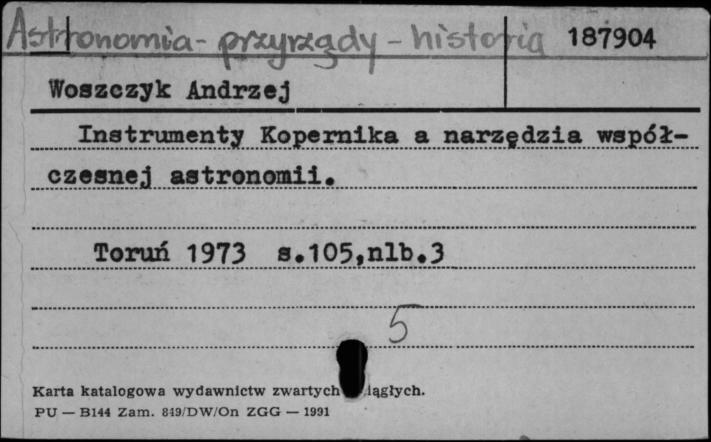 Astronomia - przyrządy - historia 187904
Woszczyk Andrzej
Instrumenty Kopernika a narzędzia współ-
czesnej astronomii.
Toruń 1973 s.105,nlb.3
5
Karta katalogowa wydawnictw zwartych iągłych.
PU — B144 Zam. 849/DW/On ZGG — 1991